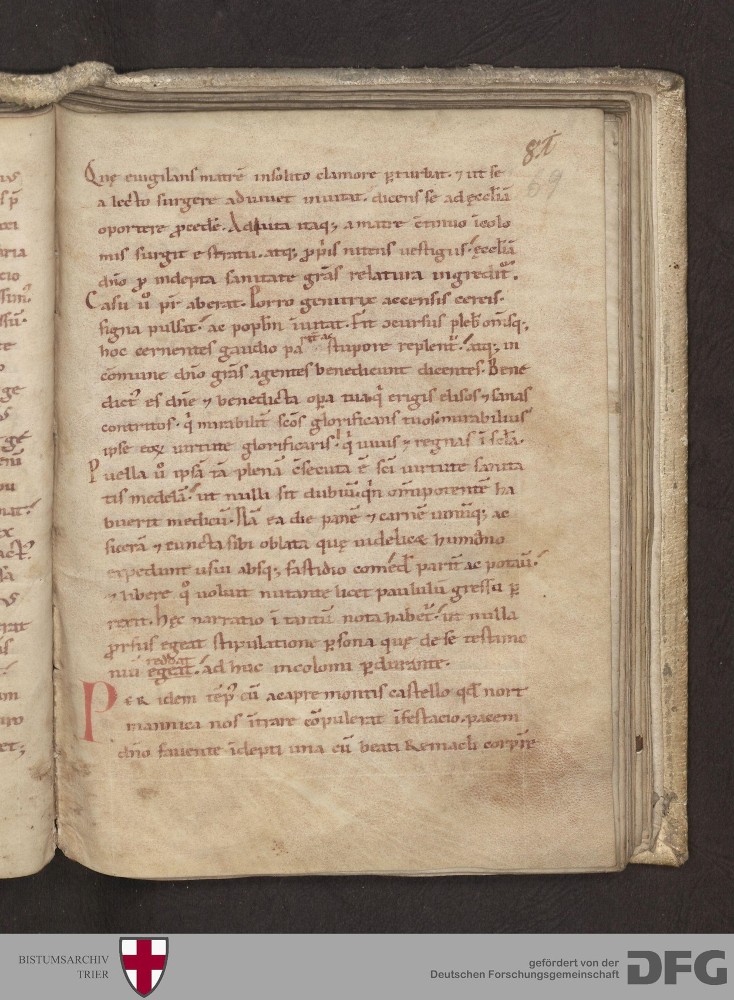 81
69
Quę euigilans matrē insolito clamore ꝑturbat. ⁊ ut se
a lecto surgere adiuuet inuitat. dicens se ad ęcclīā
oportere ꝓcedere. Adiuta itaq; a matre incolo
mis surgit e stratu. atq; ꝓpriis nitens uestigiis ęcclīā
dn̄o ꝓ indepta sanitate grās relatura ingreditur.
Casu ů pr̄ aberat. Porro genitrix accensis cereis.
signa pulsat. ac popłm inuitat. Fit ↄcursus pleb
hoc cernentes gaudio stupore replent᷑. atq; in
cōmune dn̄o grās agentes benedicunt dicentes. Bene
dict᷒ es dn̄e ⁊ benedicta oꝑa tua. qͥ erigis elisos ⁊ sanas
contritos. qͥ mirabilit̄ sc̄os glorificans tuos. mirabilius
ipse eoꝝ uirtute glorificaris. qͥ uiuis ⁊ regnas ī scła.
Puella ů ipsā tā plenā c̄secuta ē sc̄i uirtute sanita
tis medelā. ut nulli sit dubiū. qn̄ om̄ipotentē ha
buerit medicū. Nā ea die panē ⁊ carnē uinūq; ac
sicerā ⁊ cuncta sibi oblata quę uidelicet humano
expediunt usui absq; fastidio comedit parit̄ ac potauit.
⁊ libere qͦ uoluit nutante licet paululū gressu ꝑ
rexit. Hęc narratio ī tantū nota habet᷑. ut nulla
ꝓrsus egeat stipulatione ꝑsona quę de se testimo
niū egeat. adhuc incolomi ꝑdurante.
reddat
PER idem tēp᷒ cū a capremontis castello qđ nort
mannica nos īt̄rare cōpulerat īfestacio. pacem
dn̄o fauente īdepti una cū beati Remacli corpore
BISTUMSARCHIV
TRIER
gefördert von der
Deutschen Forschungsgemeinschaft
DFG